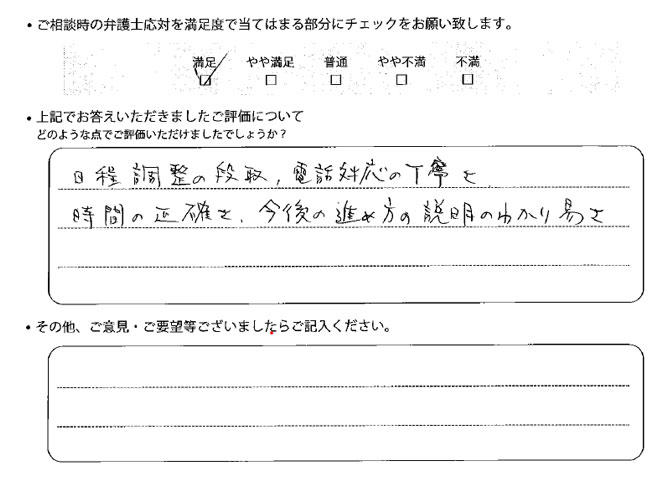 ・ご相談時の弁護士応対を満足度で当てはまる部分にチェックをお願い致します。
満足 やや満足 普通 やや不満 不満
☑ □ □ □ □
・上記でお答えいただきましたご評価について
どのような点でご評価いただけましたでしょうか？
日程調整の段取，電話対応の丁寧さ
時間の正確さ、今後の進め方の説明のわかり易さ
・その他、ご意見・ご要望等ございましたらご記入ください。